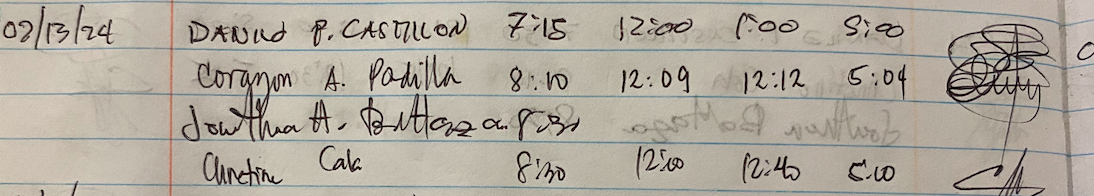 02/13/24 DANILO P. CASTILLON 7:15 12:00 1:00 5:00
Corazon A. Padilla 8:10 12:09 12:12 5:04
A. 8:30
Christine Cala 8:30 12:00 12:40 5:00